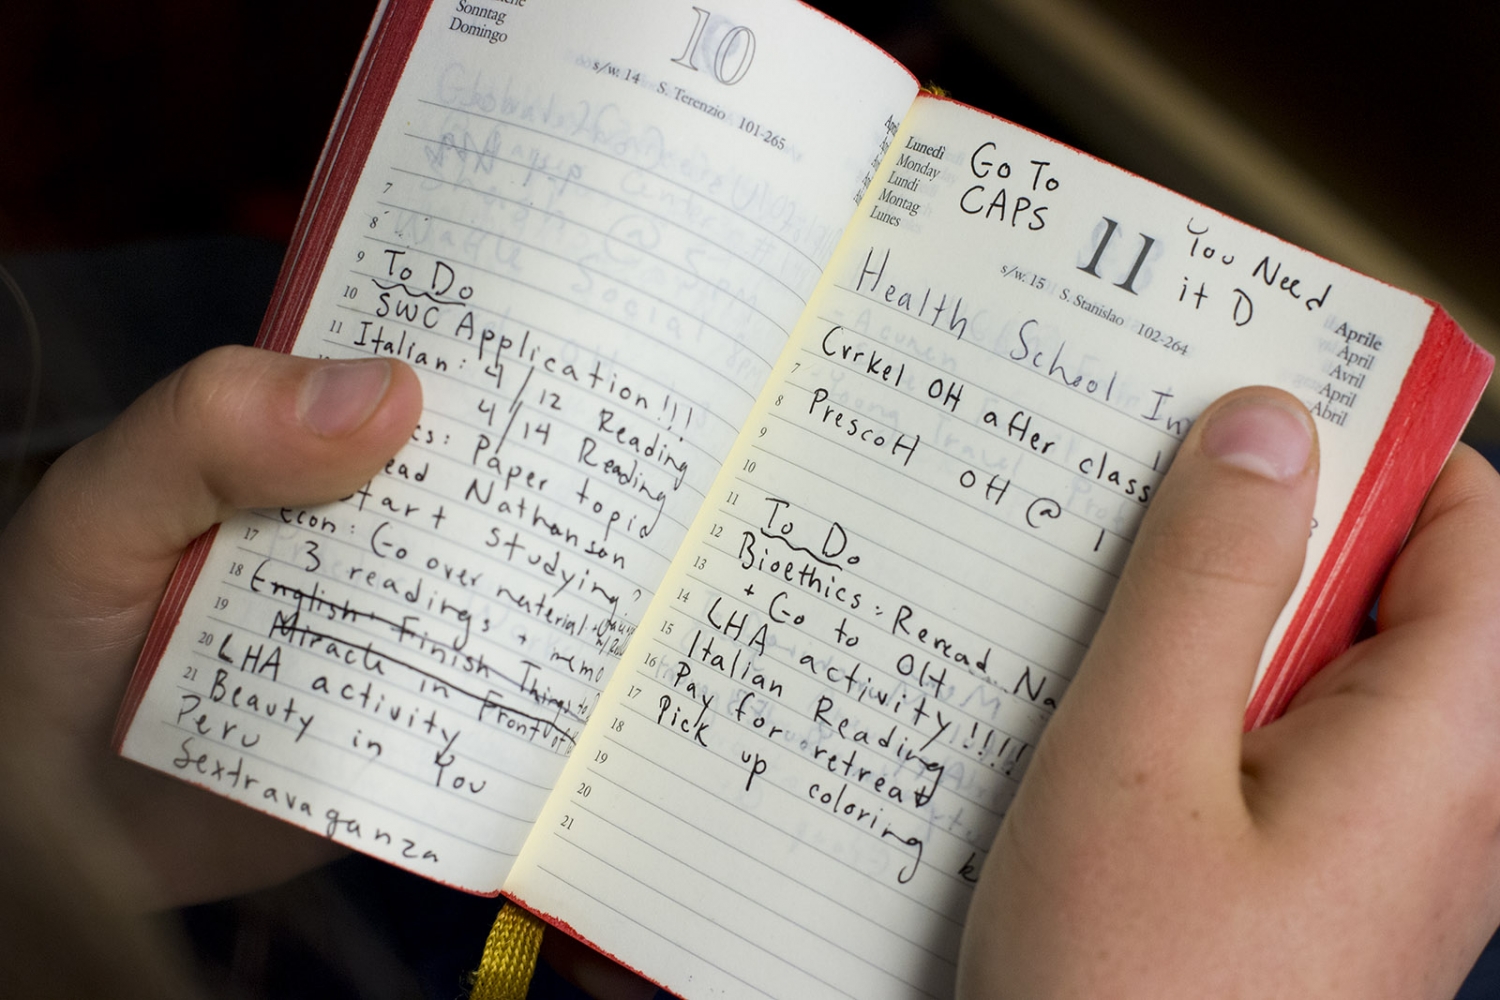 Sonntag
Domingo
10
s/w. 14 S. Terenzio 101-265
7
8
9 To Do
10 SWC Application!!!
11 Italian: 4/12 Reading
4/14 Reading
Paper topic
Nathanson
start studying?
Econ: Go over material
17 3 readings + memo
18 English: Finish Things to
19 Miracle in Front of
20 LHA activity
21 Beauty in You
Peru
Sextravaganza
Lunedì
Monday
Lundi
Montag
Lunes
Go To
CAPS
11
s/w. 15 S. Stanislao 102-264
You Need
it D
Aprile
April
Avril
April
Abril
Health School Im
Cvrkel OH after class
7
8 Prescott OH @ 1
9
10
11 To Do
12 Bioethics: Reread Na
13 + Go to OH
14 LHA activity!!!!
15 Italian Reading
16 Pay for retreat
17 Pick up coloring
18
19
20
21